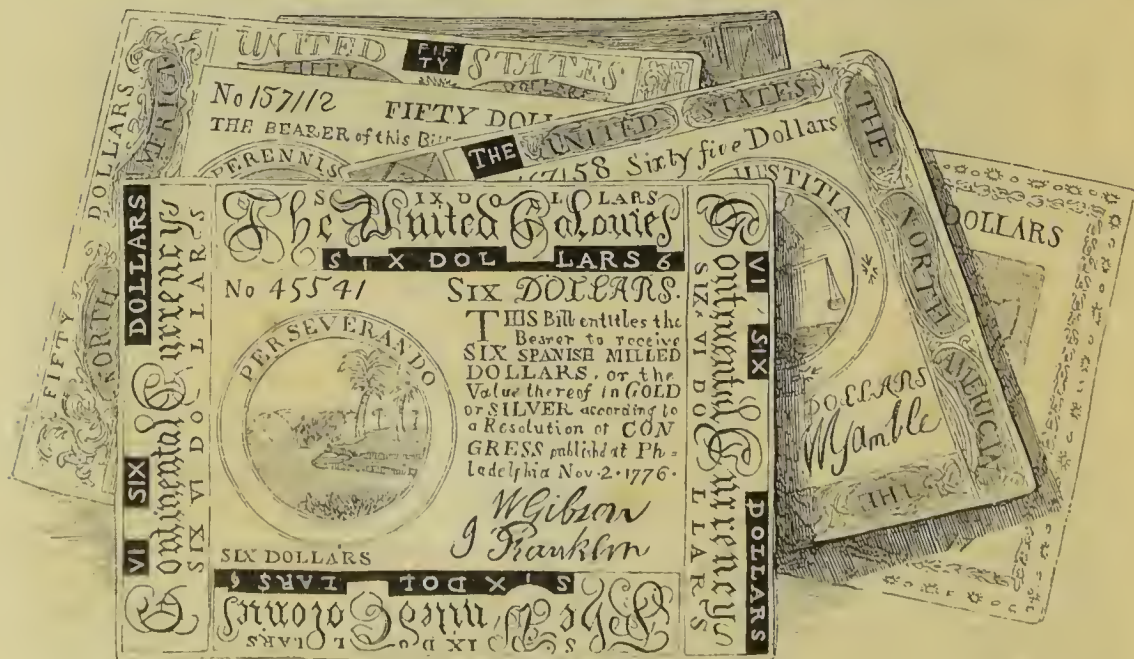 UNITED FIFTY STATES
FIFTY DOLLARS
FIFTY DOLLARS
NORTH AMERICA
No 157112 FIFTY DOLL
THE BEARER of this Bill
PERENNIS
THE UNITED STATES
THE
NORTH
AMERICA
THE
67158 Sixty five Dollars
JUSTITIA
DOLLARS
WGamble
DOLLARS
SIX DOLLARS
The United Colonies
SIX DOLLARS 6
No 45541 SIX DOLLARS.
PERSEVERANDO
THIS Bill entitles the
Bearer to receive
SIX SPANISH MILLED
DOLLARS, or the
Value thereof in GOLD
or SILVER according to
a Resolution of CON
GRESS publishd at Ph=
ladelphia Nov. 2. 1776.
WGibson
J Franklin
SIX DOLLARS
VI SIX DOLLARS
Continental Currency
SIX VI DOLLARS
VI SIX DOLLARS
Continental Currency
SIX VI DOLLARS
SIX DOLLARS 6
The United Colonies
SIX DOLLARS